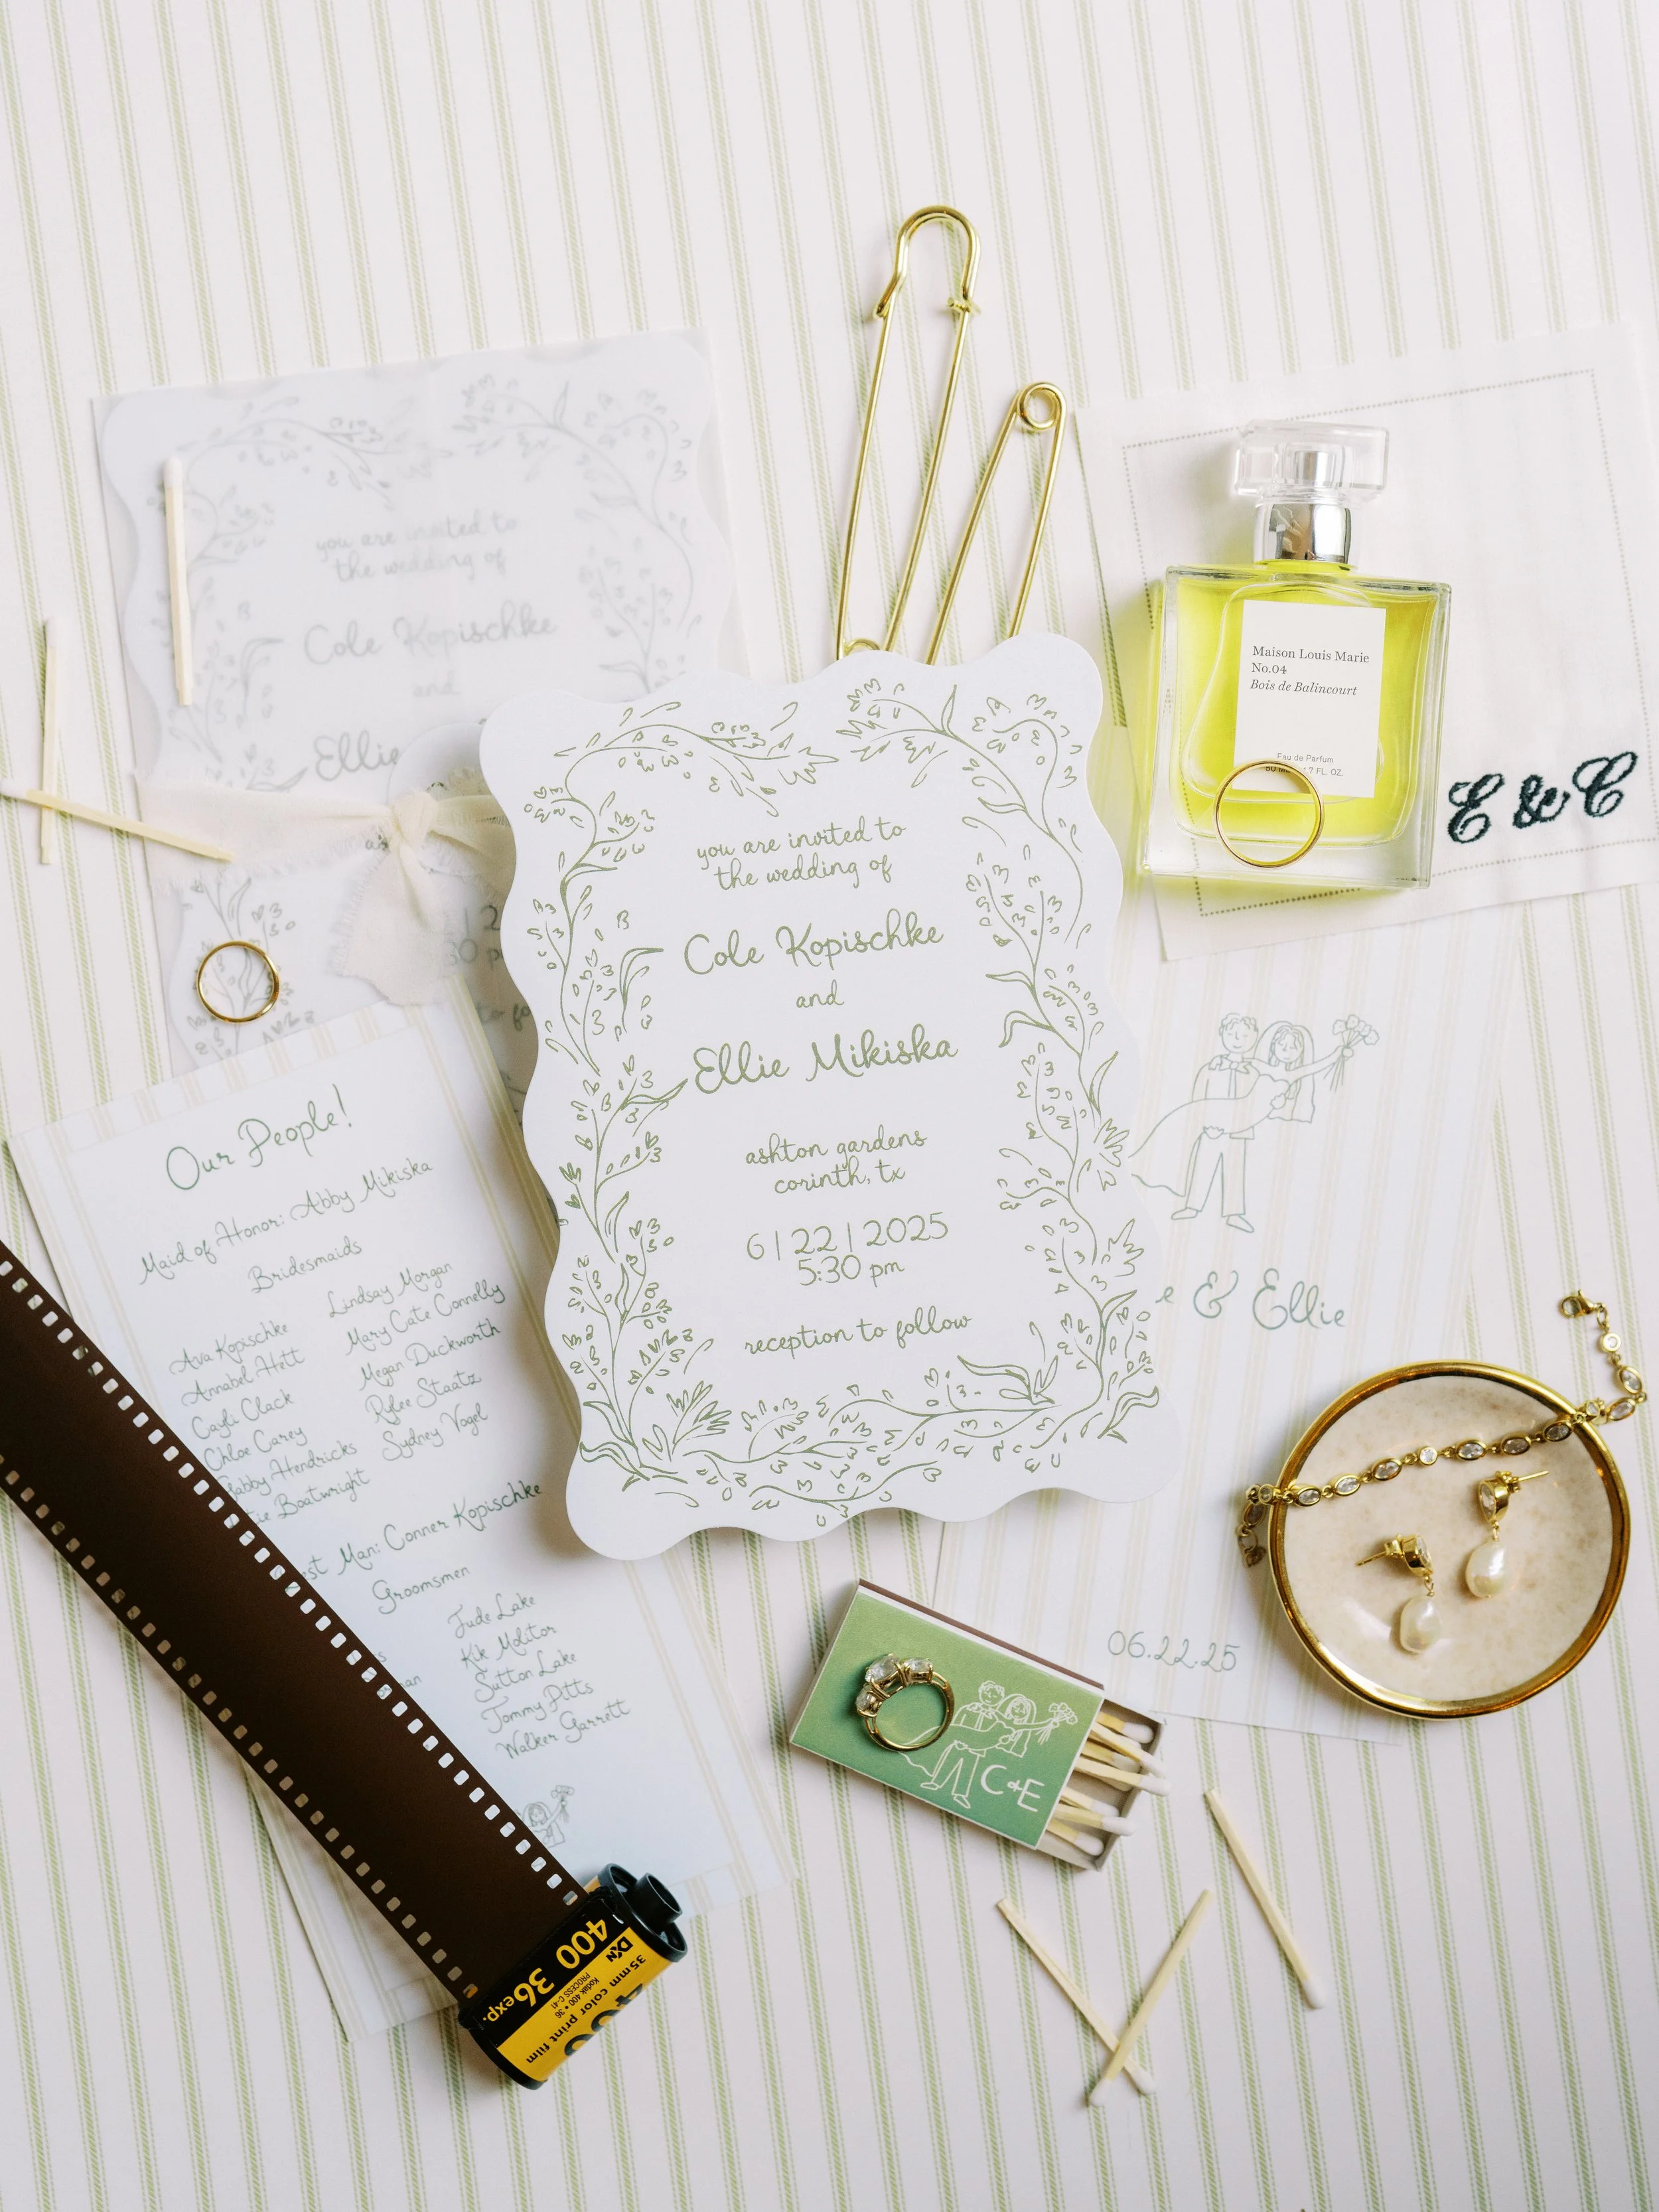 you are invited to
the wedding of
Cole Kopischke
and
Ellie
Maison Louis Marie
No.04
Bois de Balincourt
Eau de Parfum
7 FL. OZ.
E & C
you are invited to
the wedding of
Cole Kopischke
and
Ellie Mikiska
ashton gardens
corinth, tx
6 | 22 | 2025
5:30 pm
reception to follow
Our People!
Maid of Honor: Abby Mikiska
Bridesmaids
Ava Kopischke
Annabel Hett
Cayli Clack
Chloe Carey
Gabby Hendricks
Boatwright
Lindsay Morgan
Mary Cate Connelly
Megan Duckworth
Rylee Staatz
Sydney Vogel
Man: Conner Kopischke
Groomsmen
Jude Lake
Kik Molitor
Sutton Lake
Tommy Pitts
Walker Garrett
& Ellie
06.22.25
C+E
400 36exp.
DXN
35mm color print film
Kodak 400 • 36
PROCESS C-41
400